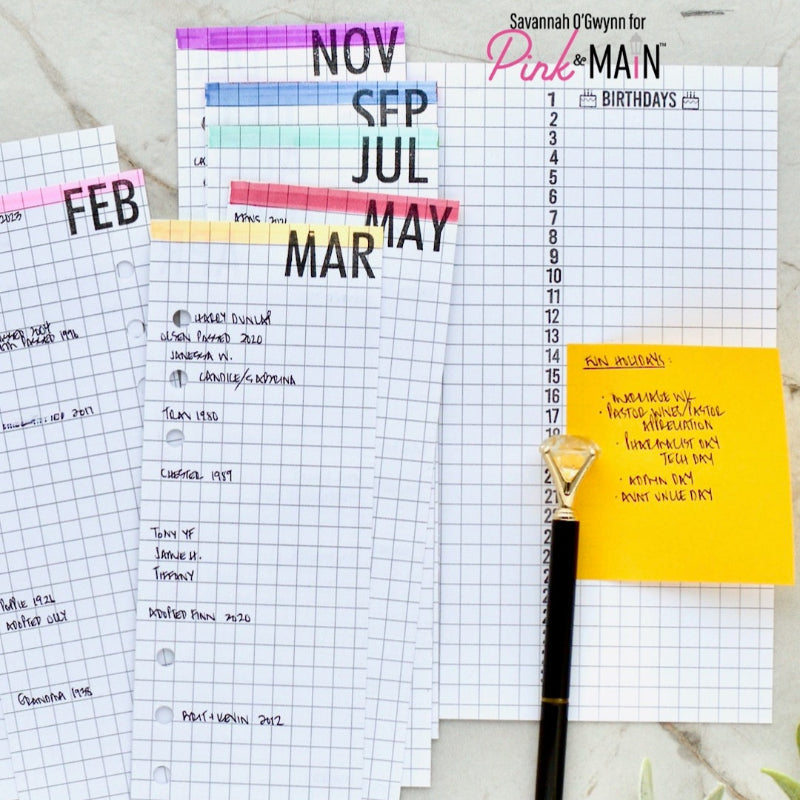 Savannah O'Gwynn for
Pink & MAIN™
NOV
SEP
JUL
MAY
FEB
2023
PASSED 1996
2017
1926
ADOPTED OLLY
GRANDMA 1938
MAR
HARRY DUNLAP
OLSEN PASSED 2020
JANESSA W.
CANDICE/SABRINA
TRAV 1980
CHESTER 1989
TONY YF
JAYNE H.
TIFFANY
ADOPTED FINN 2020
BRIT + KEVIN 2012
BIRTHDAYS
1
2
3
4
5
6
7
8
9
10
11
12
13
14
15
16
17
18
21
FUN HOLIDAYS:
· MARRIAGE WK
· PASTOR WIVES/PASTOR
APPRECIATION
· PHARMACIST DAY
TECH DAY
· ADMIN DAY
· AUNT UNCLE DAY